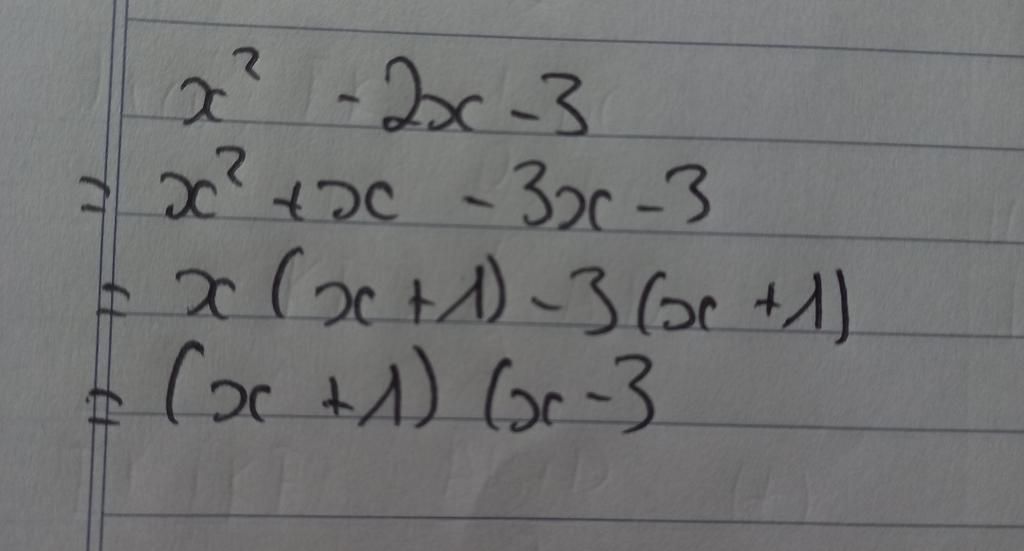 x² - 2x - 3
= x² + x - 3x - 3
= x (x + 1) - 3 (x + 1)
= (x + 1) (x - 3